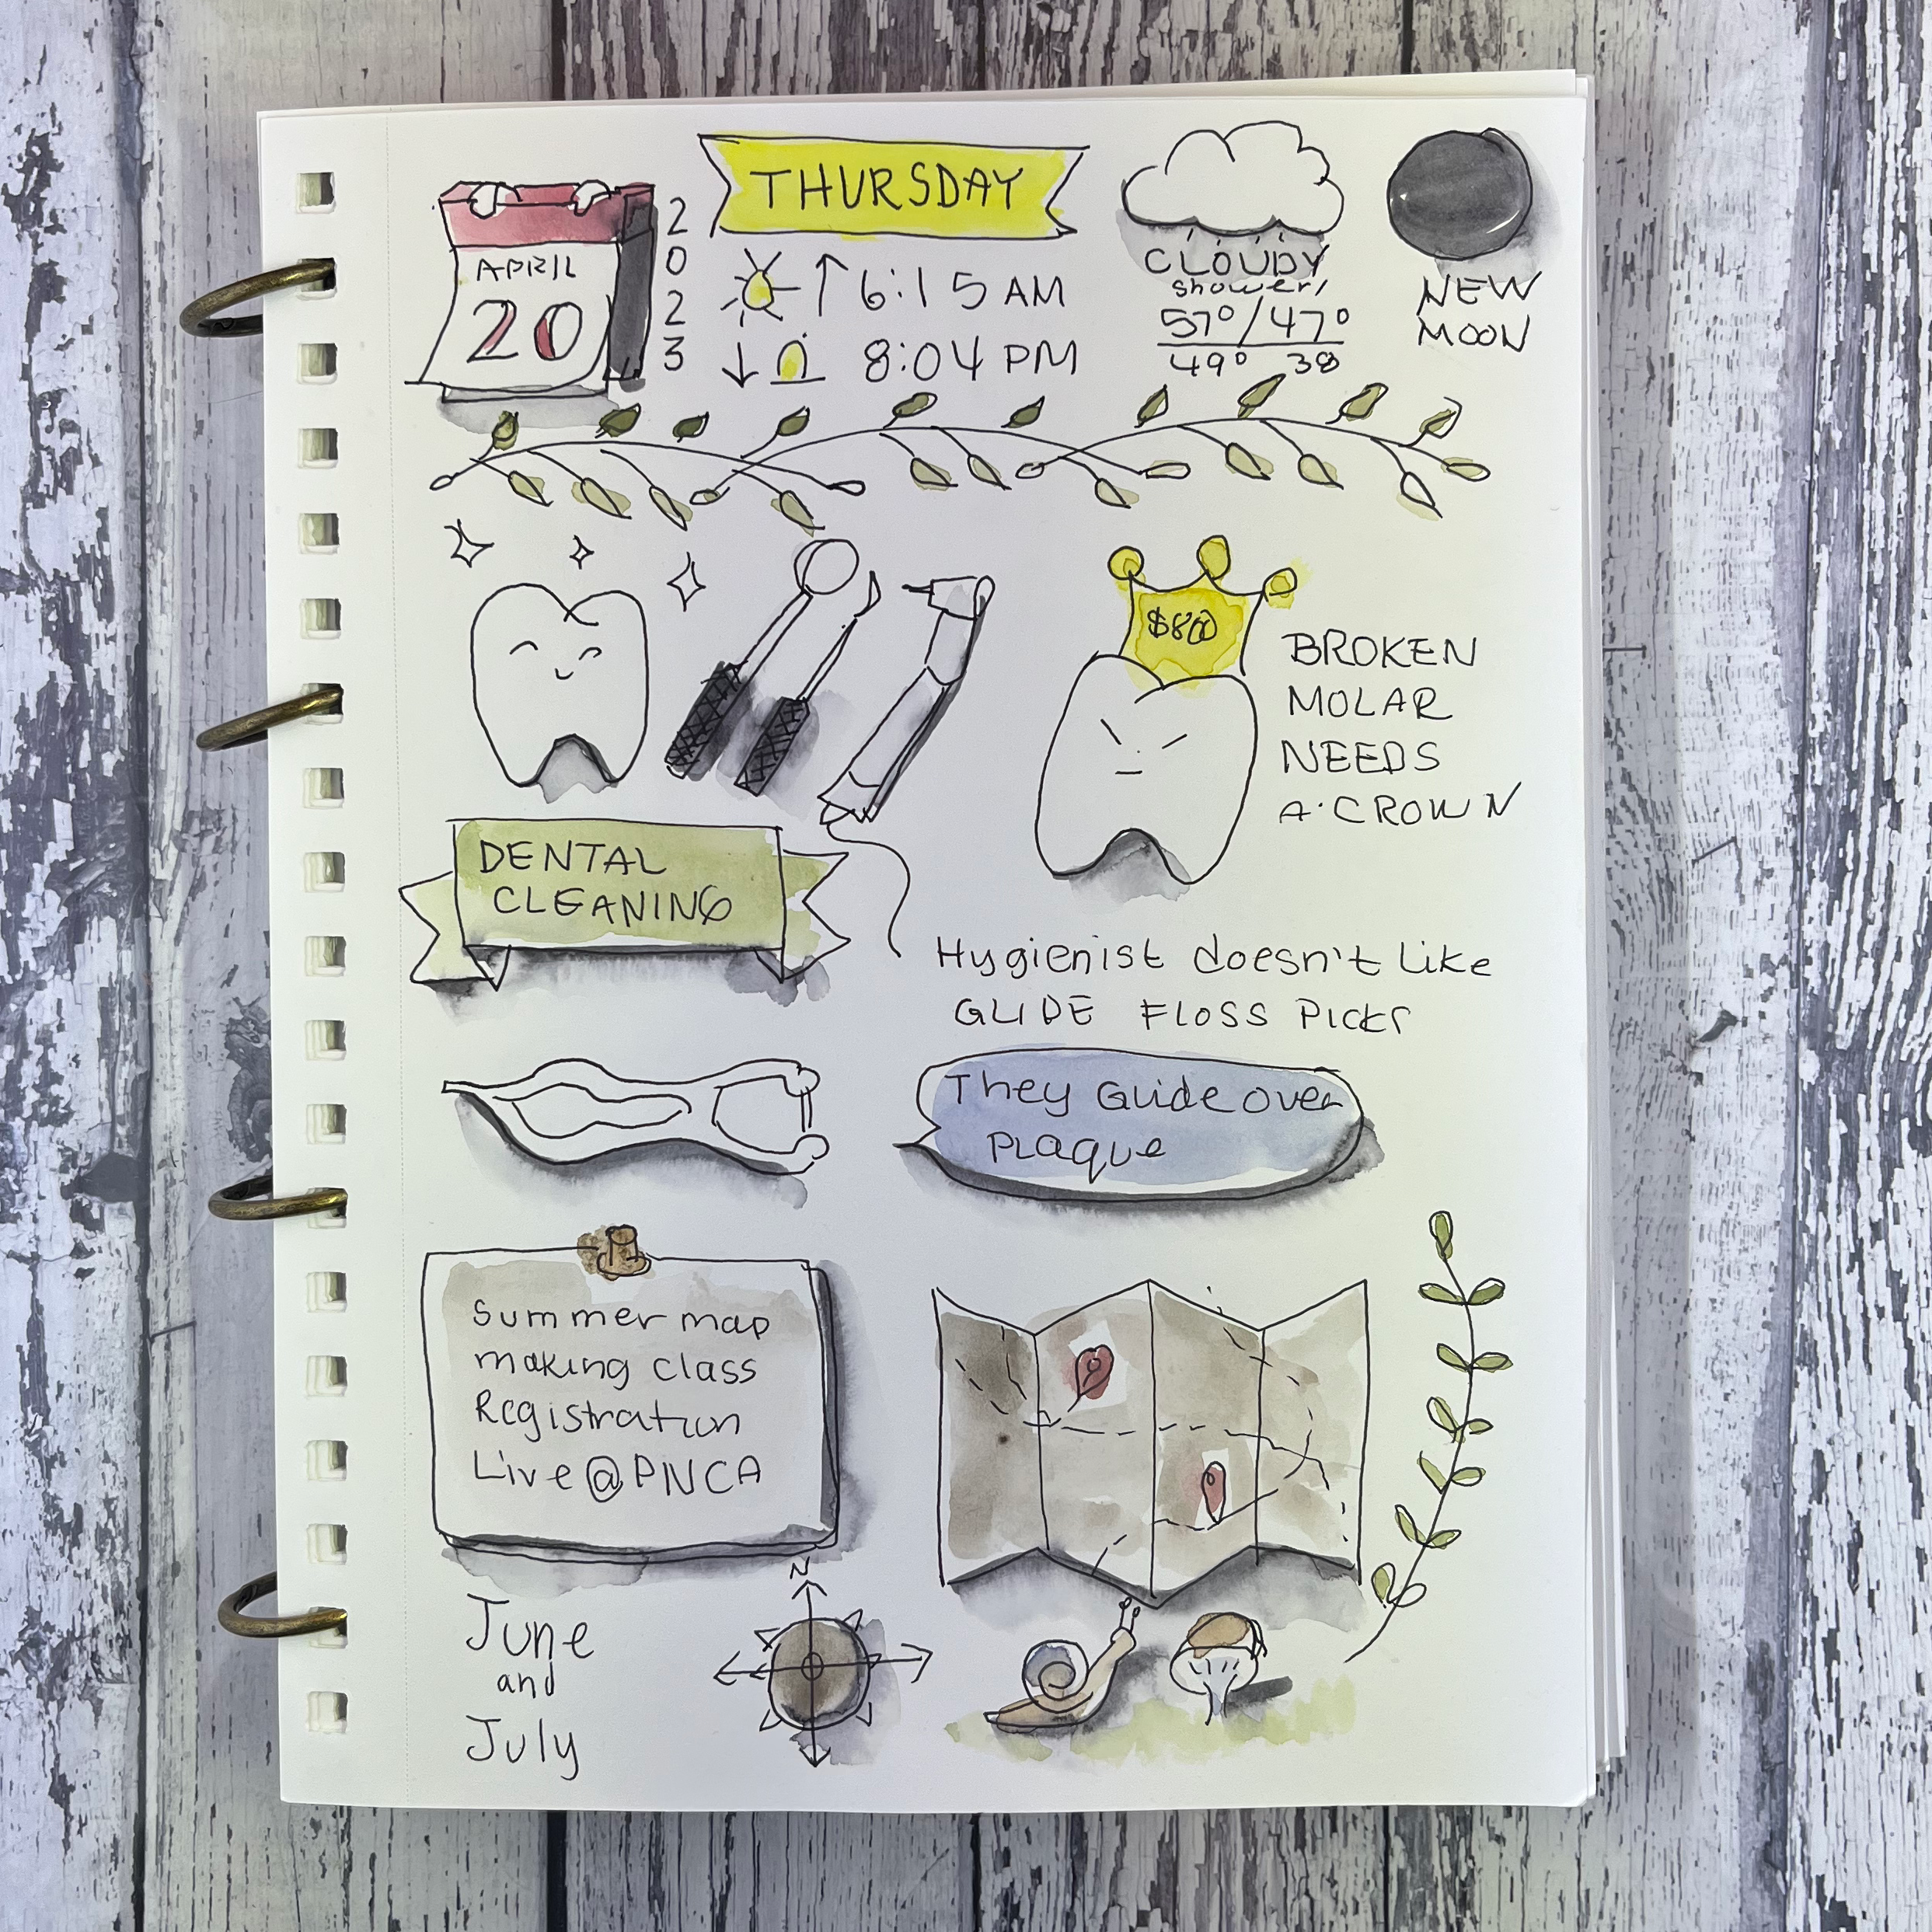 THURSDAY
APRIL
20
2023
6:15 AM
8:04 PM
CLOUDY
showers
57°/47°
49° 38
NEW
MOON
DENTAL
CLEANING
BROKEN
MOLAR
NEEDS
A CROWN
Hygienist doesn't Like
GLIDE FLOSS PICKS
They Glide over
PLaque
Summer map
making class
Registration
Live @ PNCA
N
June
and
July